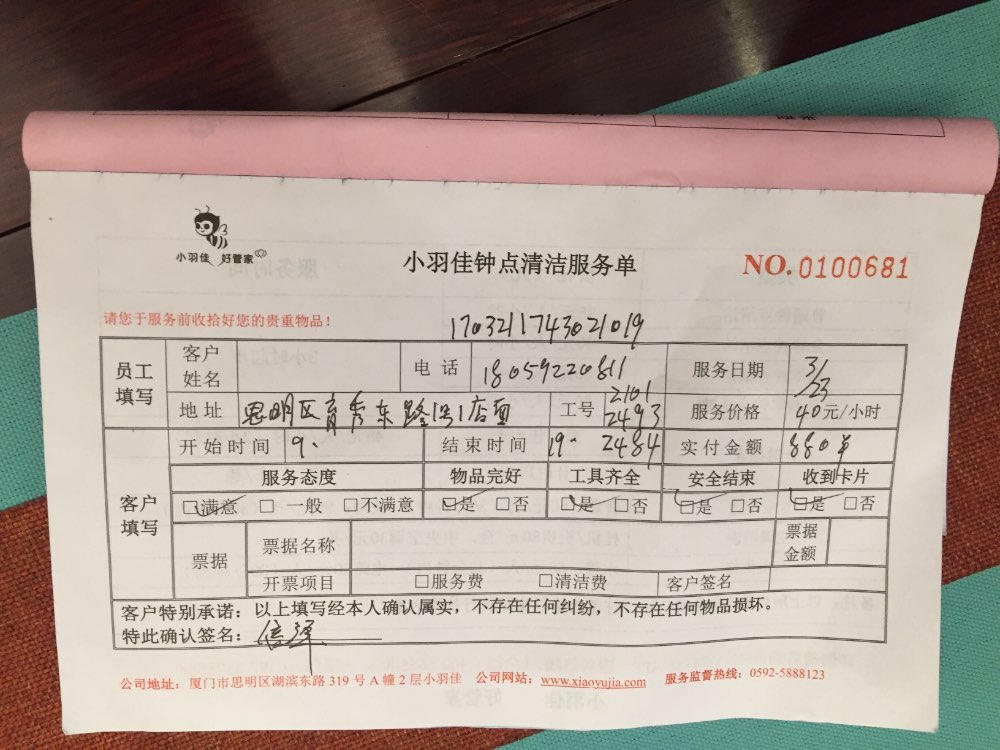 小羽佳 好管家
小羽佳钟点清洁服务单
NO.0100681
请您于服务前收拾好您的贵重物品！
1703211743021019
员工填写 客户姓名 电话 18059220811 服务日期 3/23
地址 思明区育秀东路 店面 工号 2101 2493 服务价格 40元/小时
开始时间 9. 结束时间 19. 2484 实付金额 880
客户填写 服务态度 物品完好 工具齐全 安全结束 收到卡片
□满意 □一般 □不满意 □是 □否 □是 □否 □是 □否 □是 □否
票据 票据名称 票据金额
开票项目 □服务费 □清洁费 客户签名
客户特别承诺：以上填写经本人确认属实，不存在任何纠纷，不存在任何物品损坏。
特此确认签名：
公司地址：厦门市思明区湖滨东路 319 号 A 幢 2 层小羽佳 公司网站：www.xiaoyujia.com 服务监督热线：0592-5888123